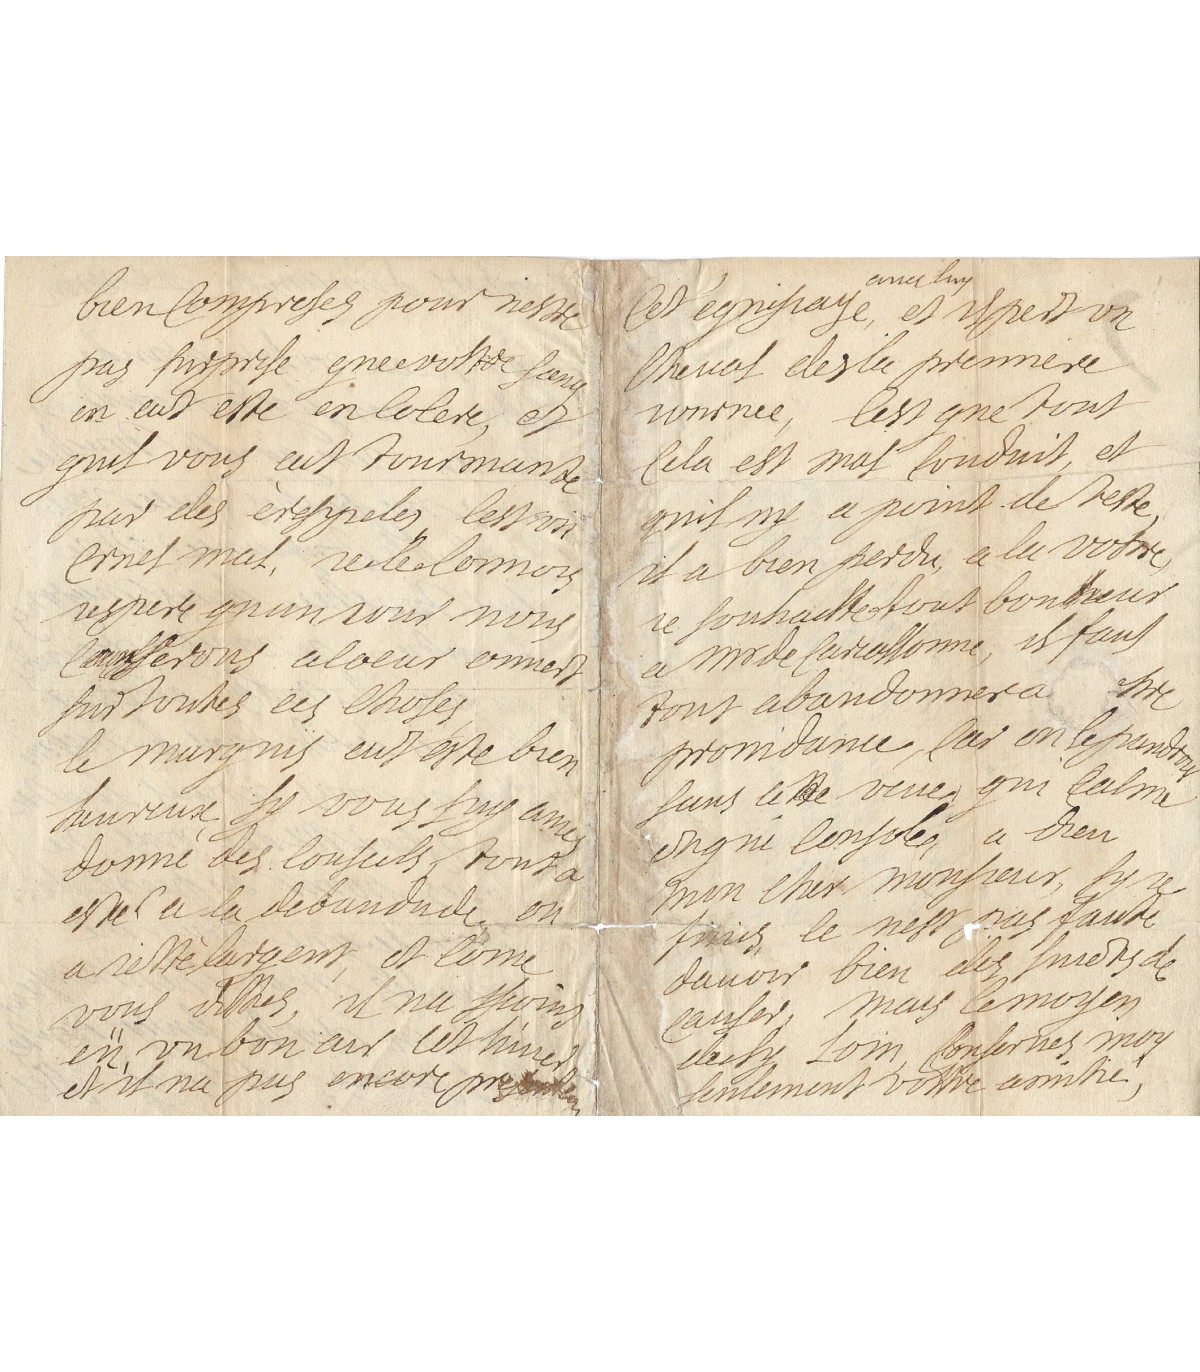 bien Compreses pour nestre
pas surprise que vottre sang
en eut este en Colere, et
quil vous eut tourmante
par des eresypeles, Cest un
Cruel mal, ie le Connois
iespere quun iour nous
Causerons a Coeur ouvert
sur toutes ces Choses,
le marquis eut este bien
heureux, sy vous luy avies
donné des Conseils, tout a
esté a la debandade, on
a ietté largent, et Come
vous dittes, il na
eü un bon air Cet hiver
et il na pas encore
avec luy
Cet equipage, et il pert un
Cheval des la premiere
iournee, Cest que tout
Cela est mal Conduit, et
quil ny a point de teste,
il a bien perdu, a la votre,
ie souhaitte tout bonheur
a Mr de Carcassonne, il faut
tout abandonner a
providance, Car on se pandroit
sans cette veue, qui Calme
et qui Console, a dieu
mon Cher monsieur, sy ie
finis, Ce nest pas faute
davoir bien des suiets de
Causer, mais le moyen
de sy loin, Conserves moy
seulement vottre amitié,